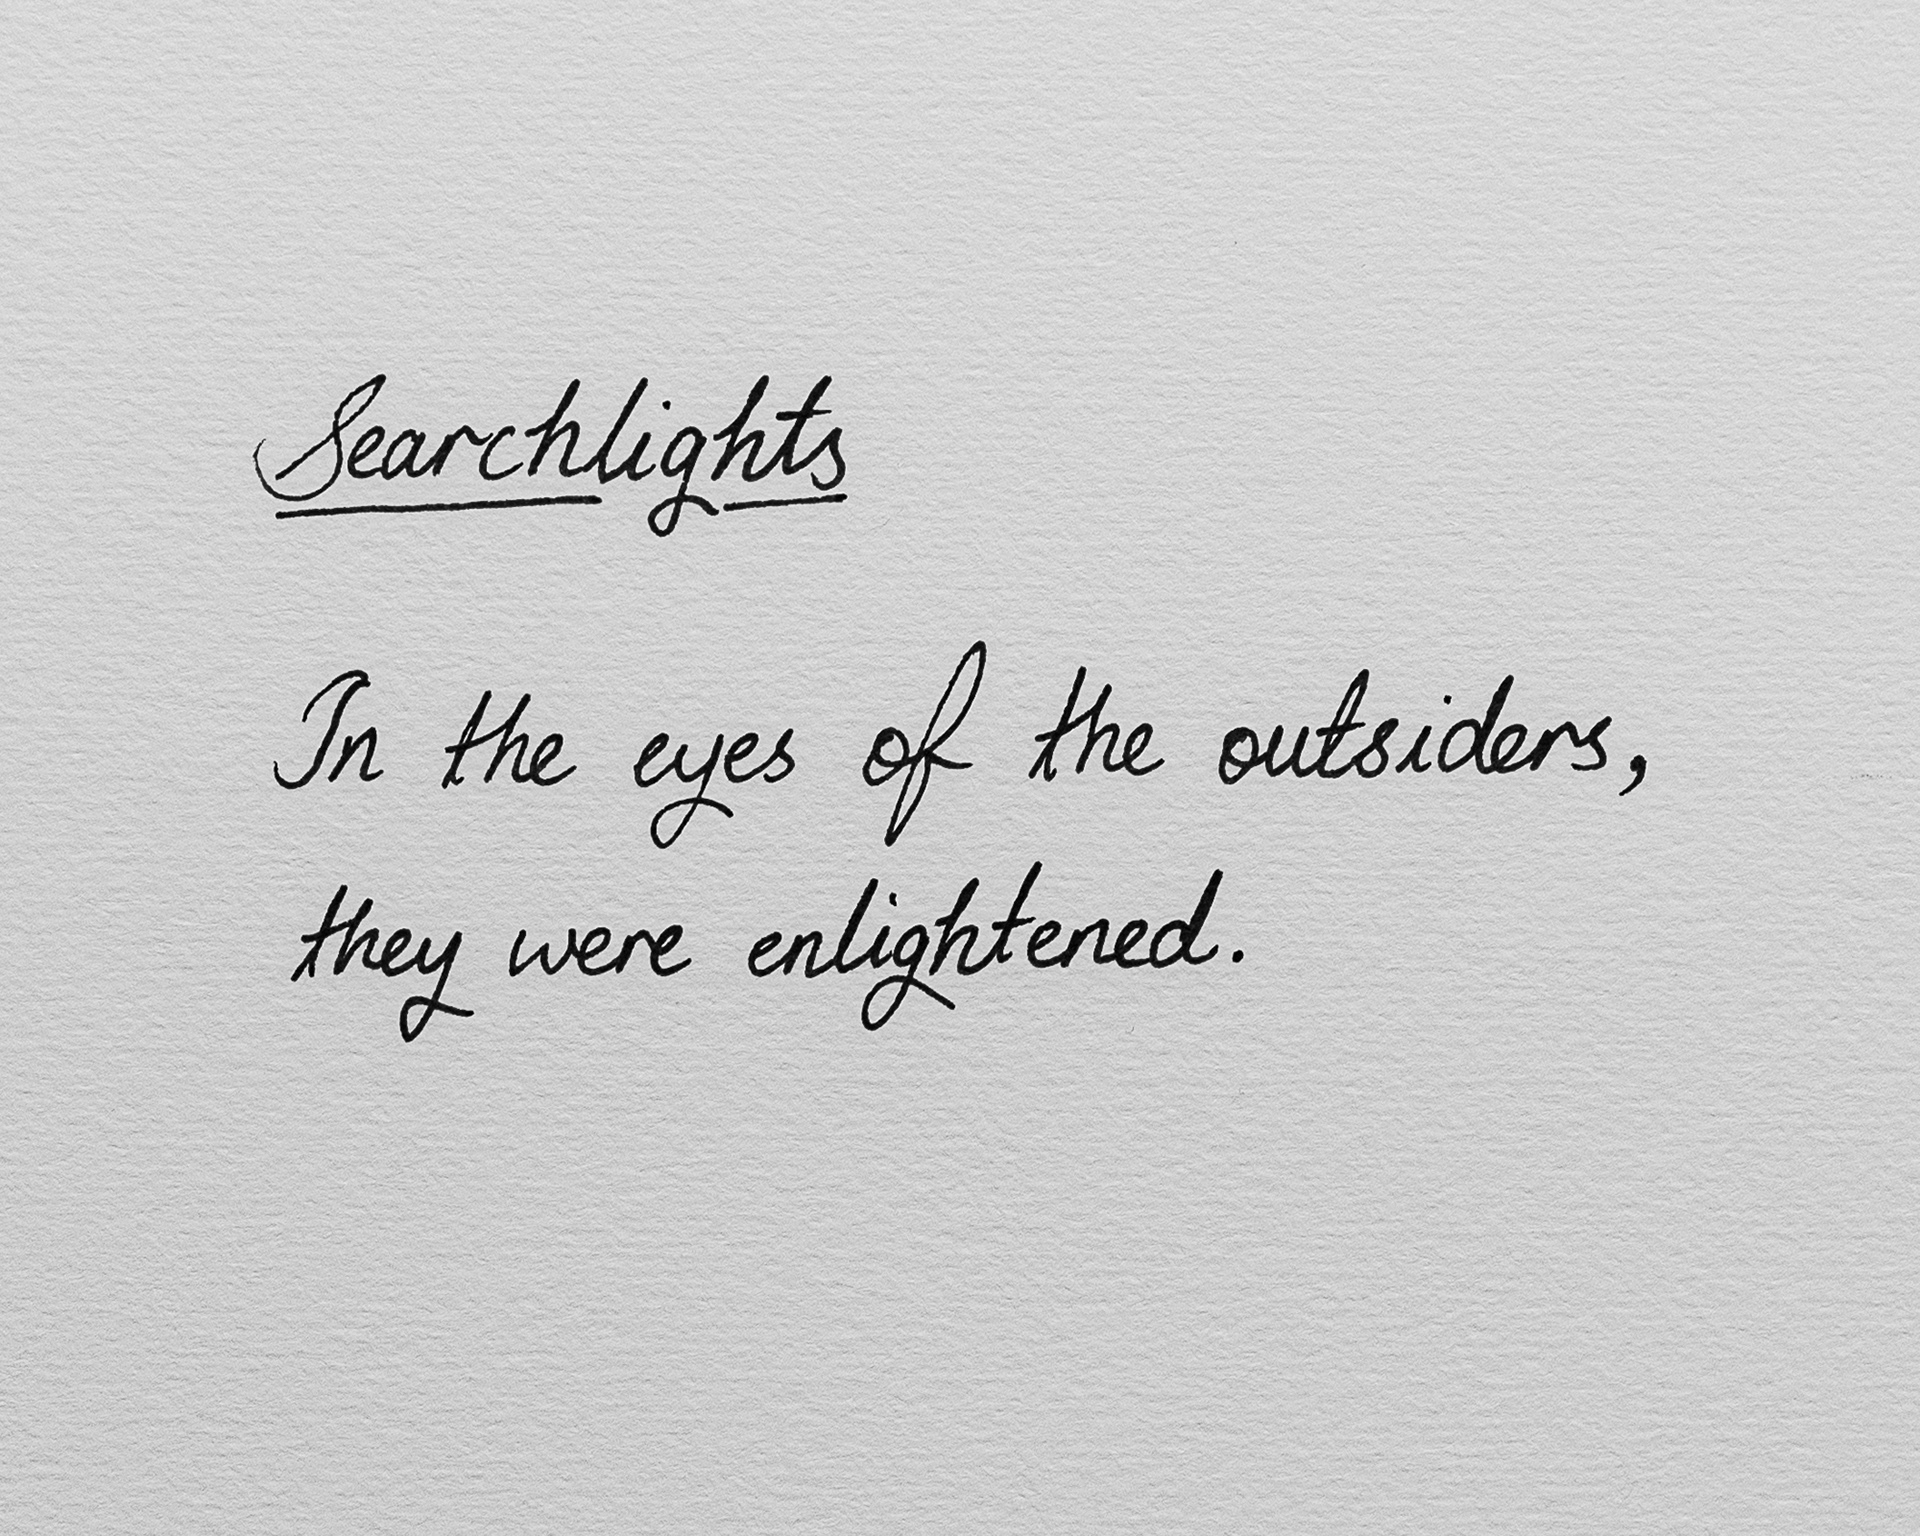 Searchlights
In the eyes of the outsiders,
they were enlightened.